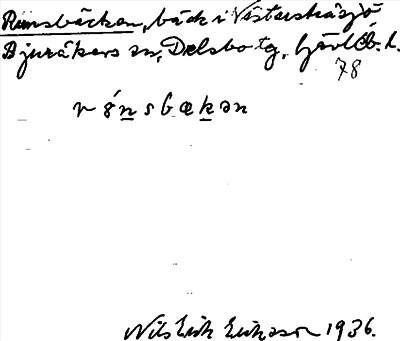 Runsbäcken, bäck i Västerhåsjö
Bjuråkers sn, Delsbo tg, Gävleb. l.
78
rónsbækən
Nils Erik Eriksson 1936.